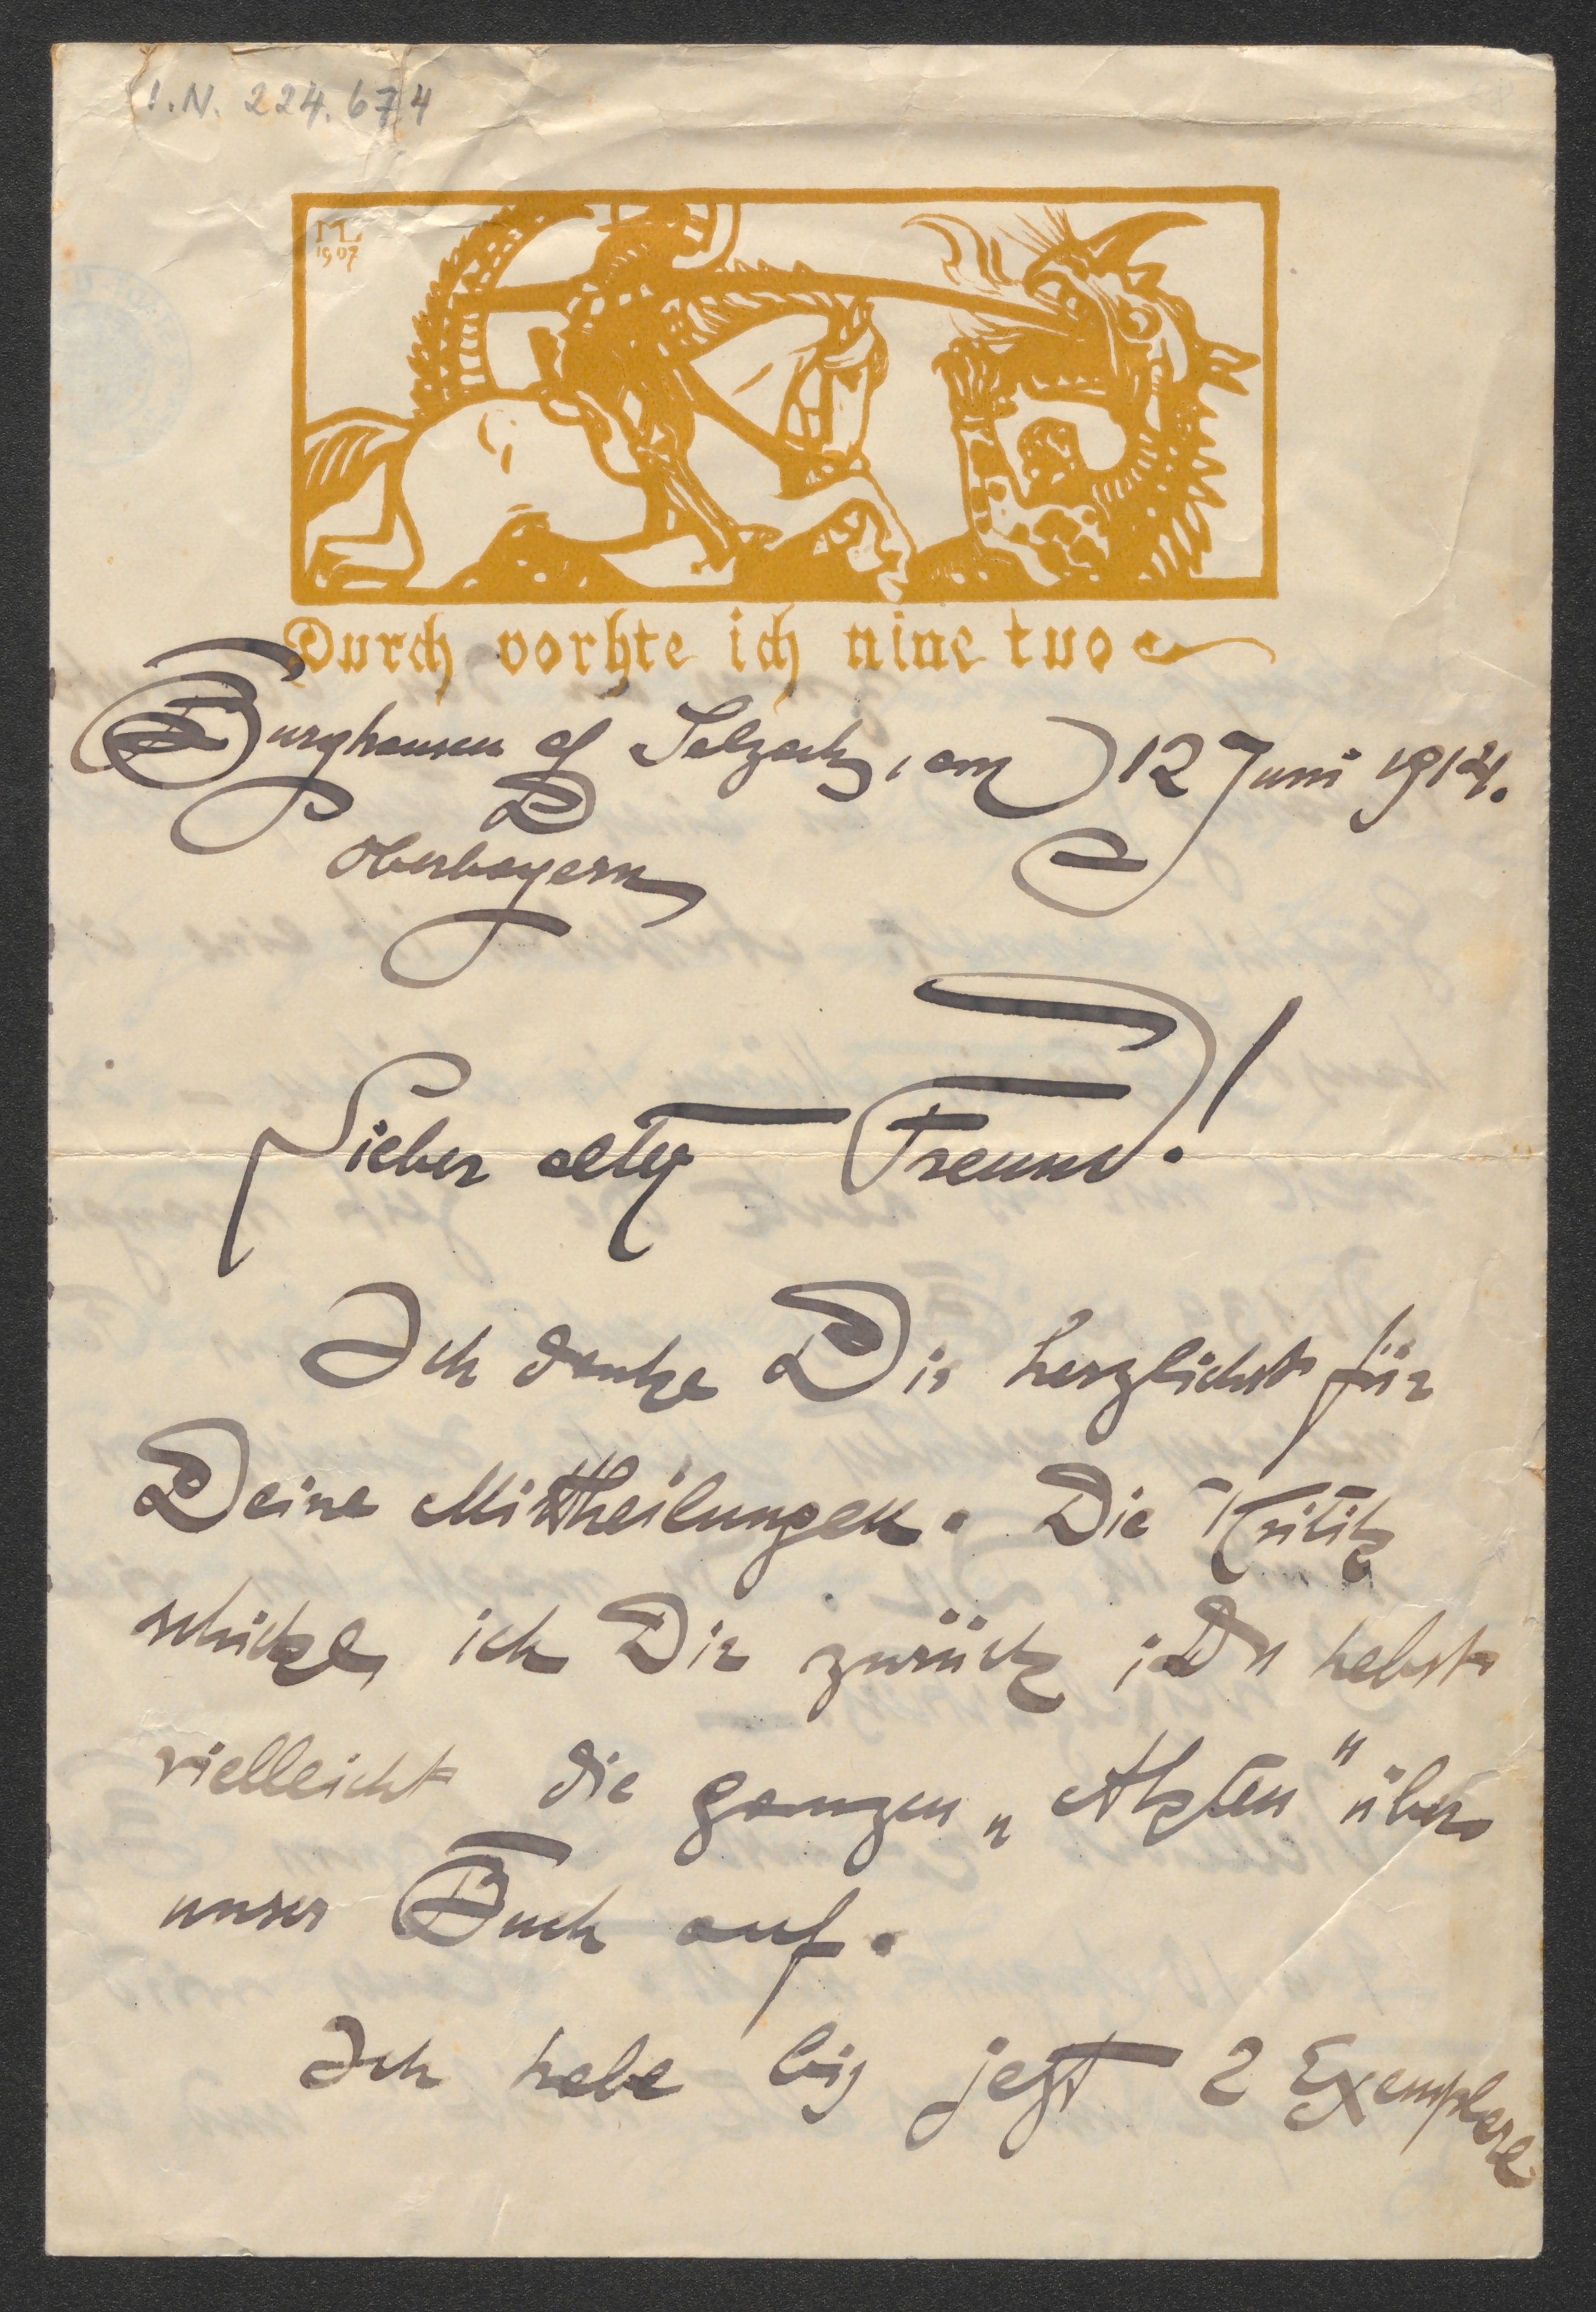 I.N. 224.674
TL
1907
Durch vorhte ich nine tuo
Burghausen a/ Salzach, am 12 Juni 1914.
Oberbayern
Lieber alter Freund!
Ich danke Dir herzlichst für
Deine Mittheilungen. Die Kritik
schicke ich Dir zurück; Du hebst
vielleicht die ganzen „Akten" über
unser Buch auf.
Ich habe bis jetzt 2 Exemplare